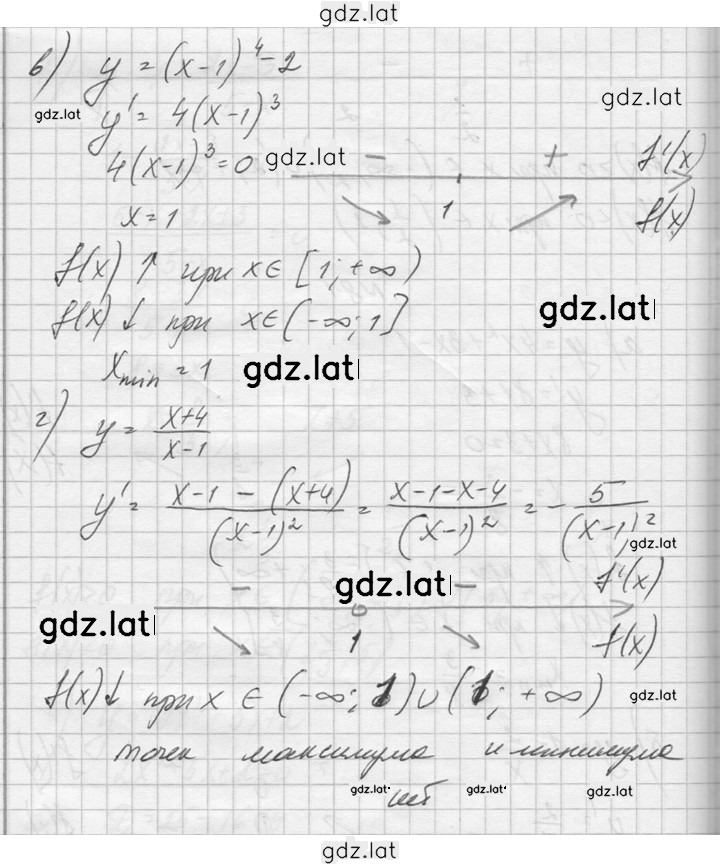 gdz.lat
в) y = (x-1)^4 - 2
gdz.lat
gdz.lat
y' = 4(x-1)^3
4(x-1)^3 = 0
gdz.lat
- + f'(x)
x = 1
1 f(x)
f(x) ↑ при x ∈ [1; +∞)
f(x) ↓ при x ∈ (-∞; 1]
gdz.lat
x_min = 1
gdz.lat
г) y = \frac{x+4}{x-1}
y' = \frac{x-1-(x+4)}{(x-1)^2} = \frac{x-1-x-4}{(x-1)^2} = -\frac{5}{(x-1)^2}
gdz.lat
- gdz.lat - f'(x)
gdz.lat
1 f(x)
f(x) ↓ при x ∈ (-∞; 1) ∪ (1; +∞)
gdz.lat
точек максимума и минимума
нет
gdz.lat gdz.lat gdz.lat
gdz.lat